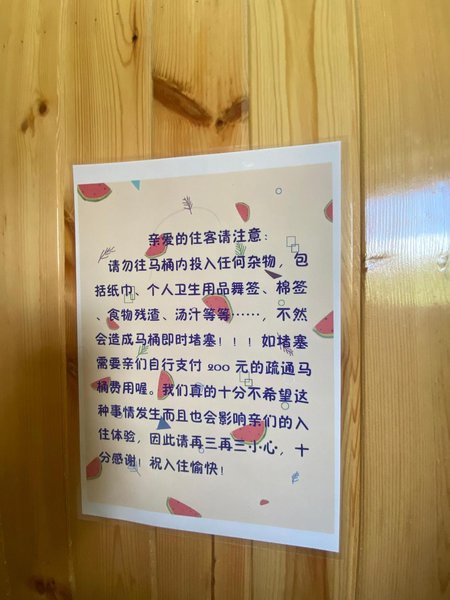 亲爱的住客请注意：
请勿往马桶内投入任何杂物，包
括纸巾、个人卫生用品舞签、棉签
、食物残渣、汤汁等等……，不然
会造成马桶即时堵塞！！！如堵塞
需要亲们自行支付 200 元的疏通马
桶费用喔。我们真的十分不希望这
种事情发生而且也会影响亲们的入
住体验，因此请再三再三小心，十
分感谢！祝入住愉快！